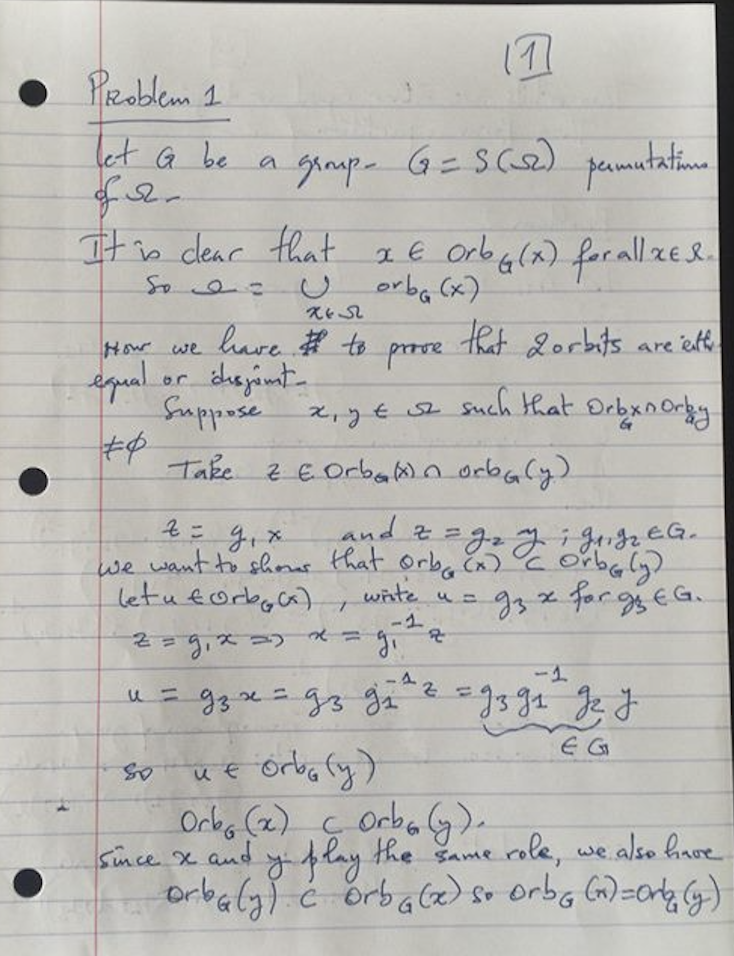 [1]
Problem 1
Let G be a group - G = S(Ω) permutations
of Ω -
It is clear that x ∈ Orb_G(x) for all x ∈ Ω.
So Ω = ∪ orb_G(x)
x ∈ Ω
Now we have to prove that 2 orbits are eith
equal or disjoint -
Suppose x, y ∈ Ω such that Orb_G x ∩ Orb_G y
≠ ∅
Take z ∈ Orb_G(x) ∩ orb_G(y)
z = g₁ x and z = g₂ y ; g₁, g₂ ∈ G.
we want to show that Orb_G(x) ⊂ Orb_G(y)
Let u ∈ Orb_G(x), write u = g₃ x for g₃ ∈ G.
z = g₁ x => x = g₁⁻¹ z
u = g₃ x = g₃ g₁⁻¹ z = g₃ g₁⁻¹ g₂ y
∈ G
so u ∈ Orb_G(y)
Orb_G(x) ⊂ Orb_G(y).
Since x and y play the same role, we also have
Orb_G(y) ⊂ Orb_G(x) so Orb_G(x) = Orb_G(y)